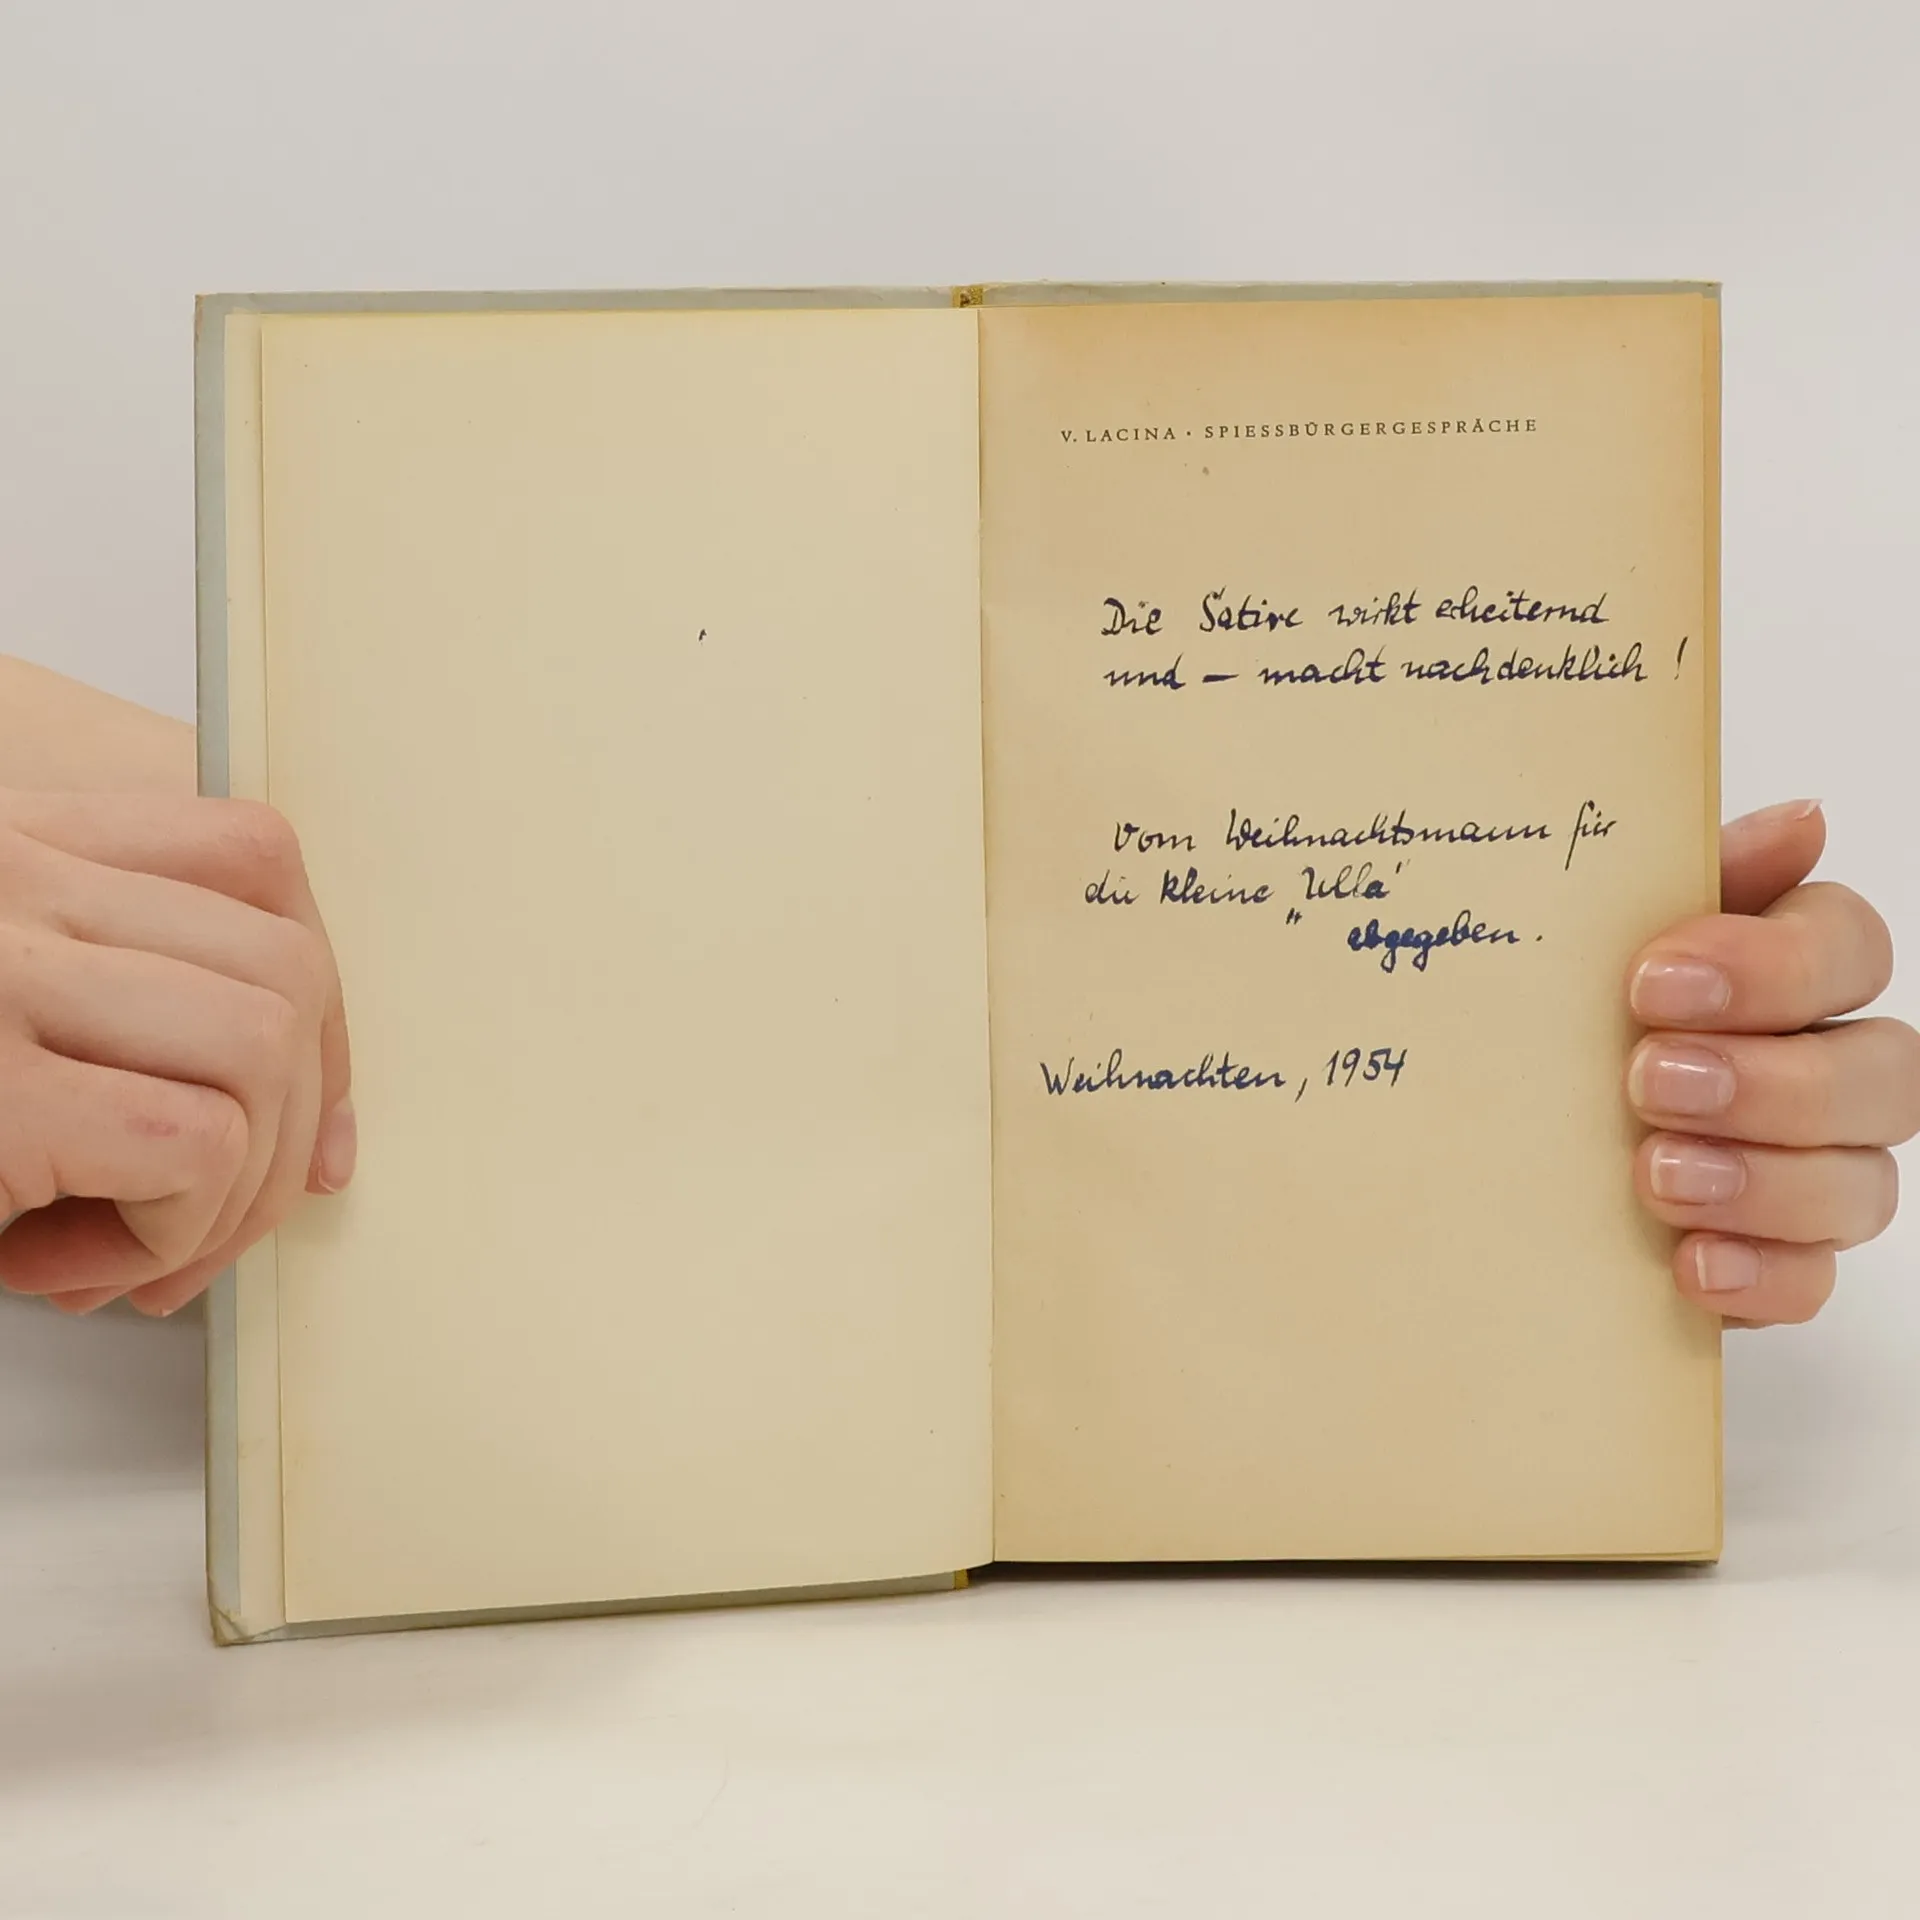 V. LACINA · SPIESSBÜRGERGESPRÄCHE
Die Satire wirkt erheiternd
und – macht nachdenklich !
Vom Weihnachtsmann für
die kleine „Ulla"
abgegeben.
Weihnachten, 1954